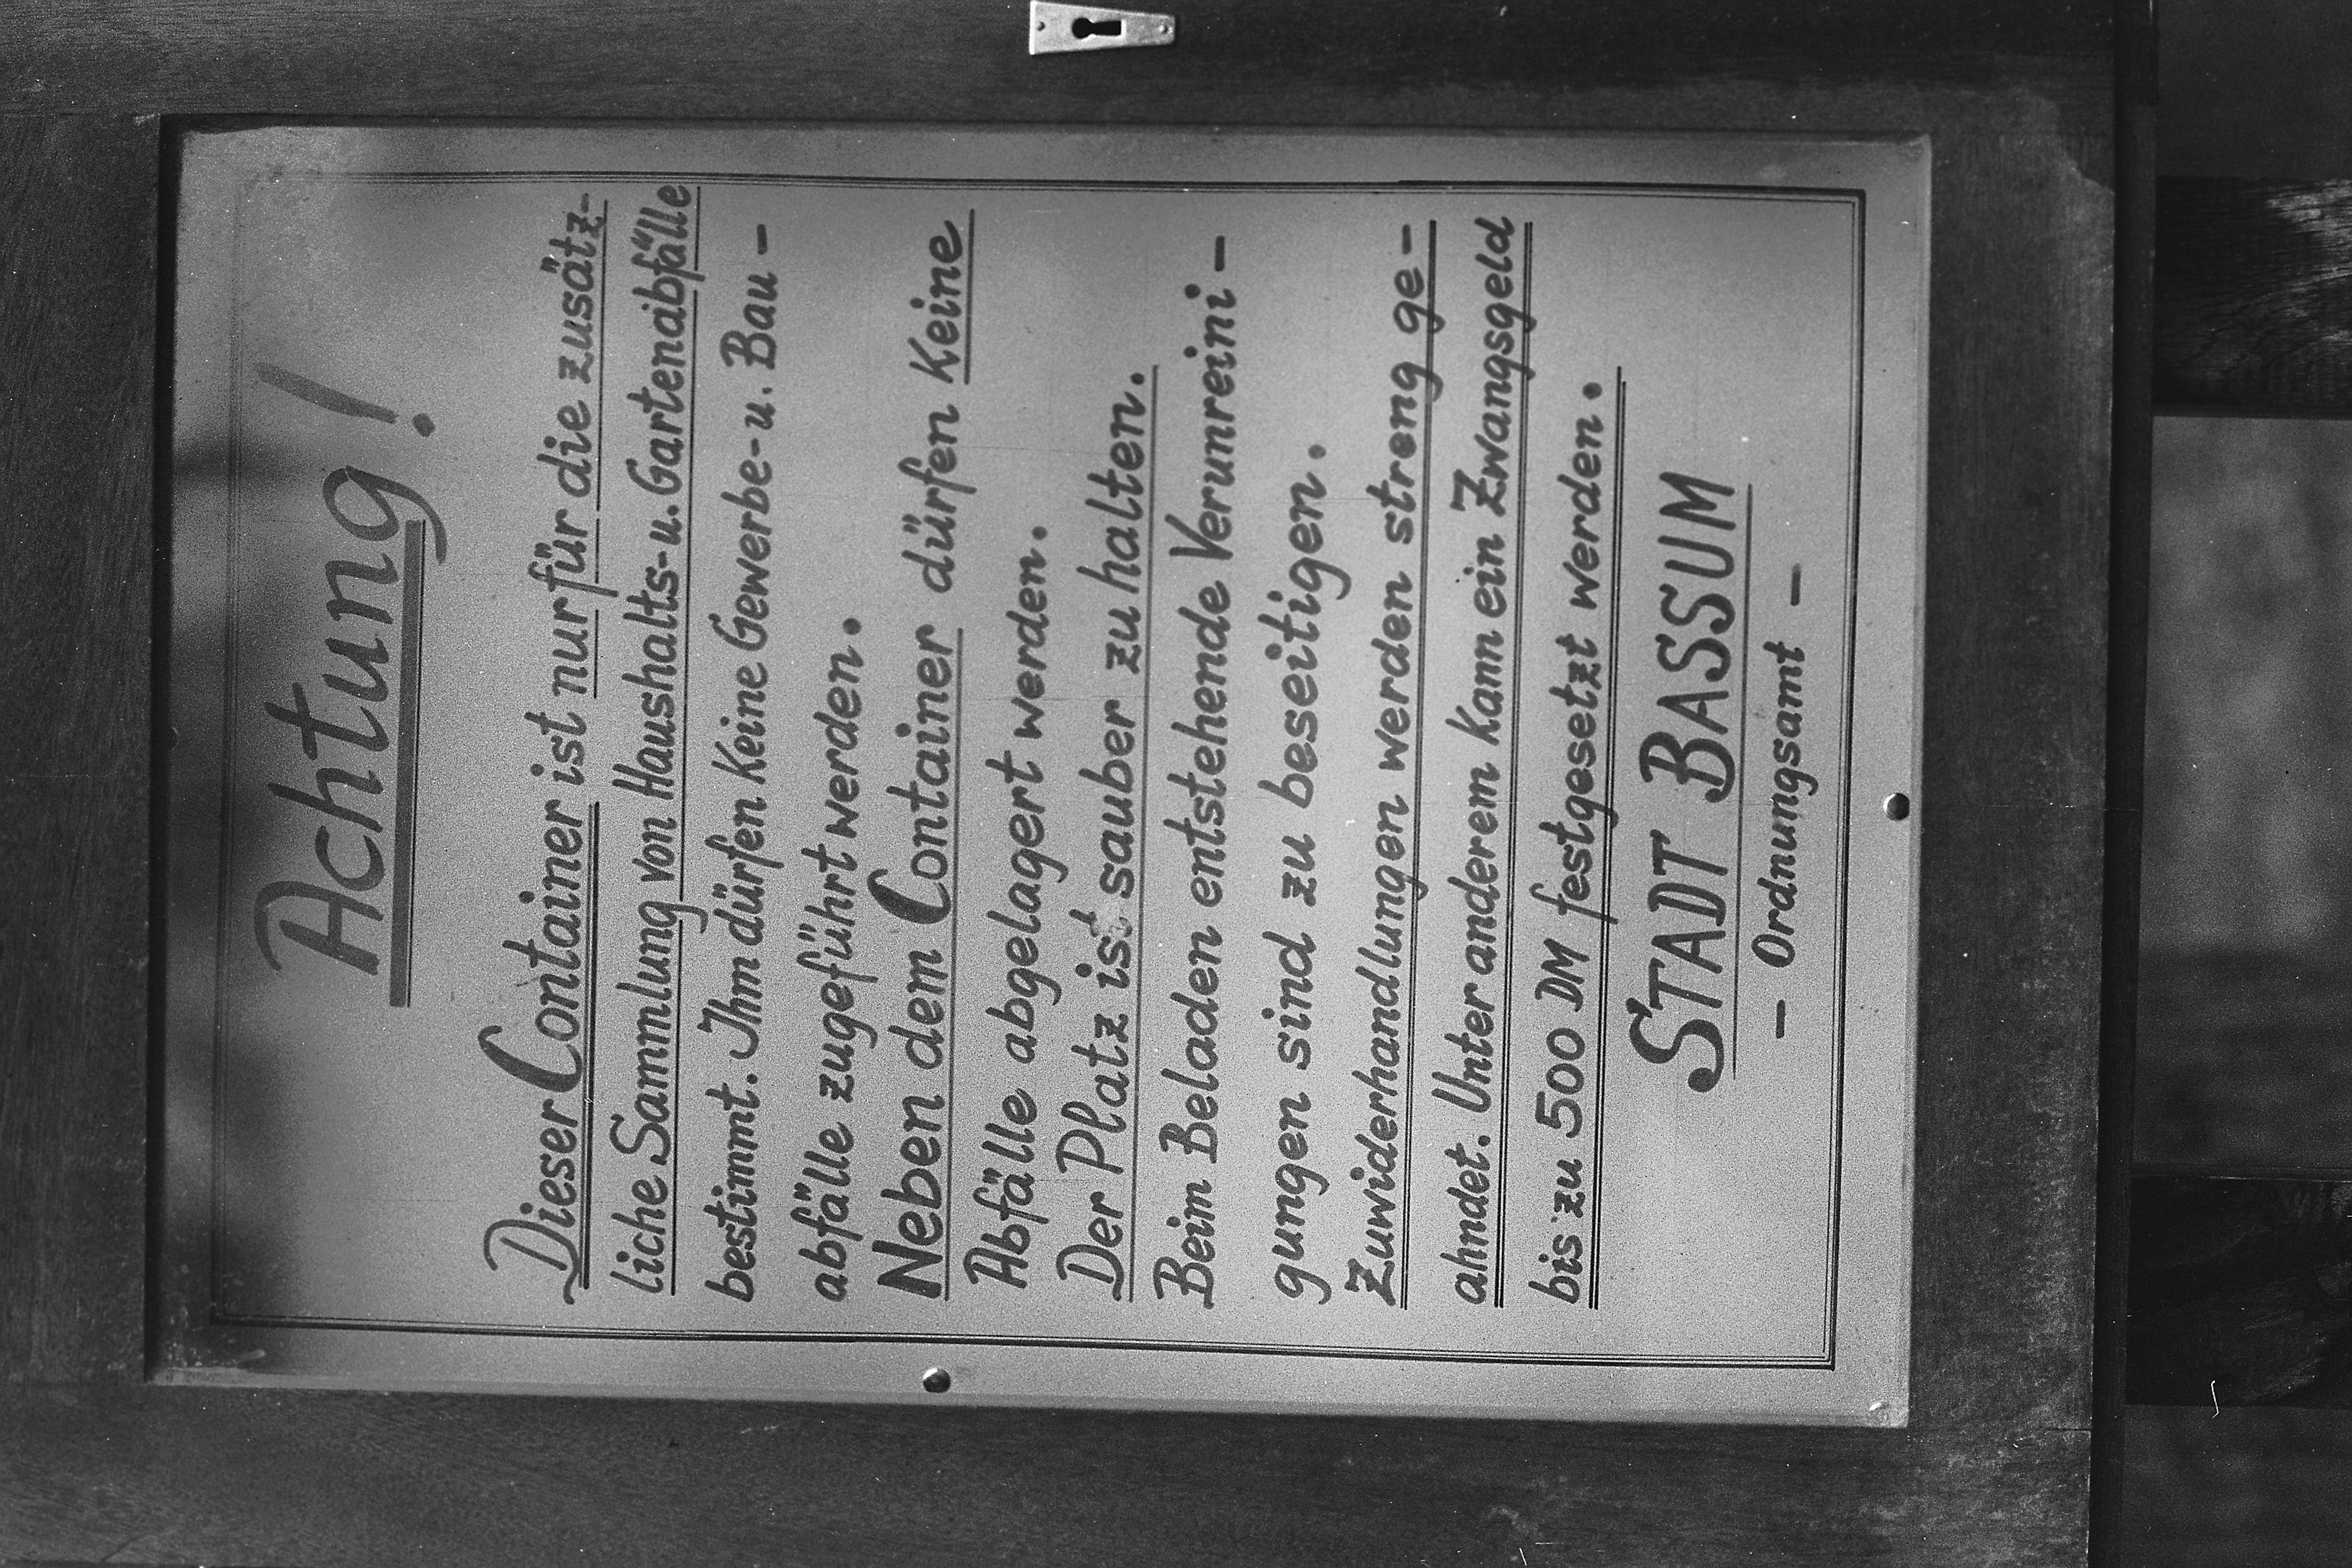 Achtung!
Dieser Container ist nur für die zusätz-
liche Sammlung von Haushalts-u. Gartenabfälle
bestimmt. Ihm dürfen Keine Gewerbe-u. Bau-
abfälle zugeführt werden.
Neben dem Container dürfen Keine
Abfälle abgelagert werden.
Der Platz ist sauber zu halten.
Beim Beladen entstehende Verunreini-
gungen sind zu beseitigen.
Zuwiderhandlungen werden streng ge-
ahndet. Unter anderem Kann ein Zwangsgeld
bis zu 500 DM festgesetzt werden.
STADT BASSUM
- Ordnungsamt -